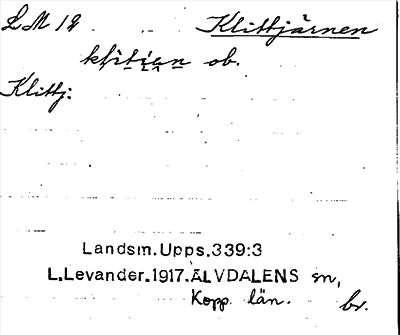 LM 18 Klittjärnen
ob.
Klittj:
Landsm.Upps.339:3
L.Levander.1917.ÄLVDALENS sn,
Kopp. län. br.